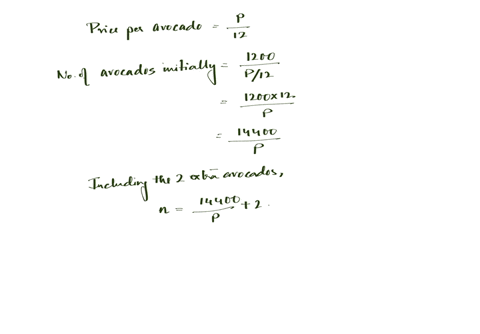 Price per avocado = P/12
No. of avocados initially = 1200/(P/12)
= 1200×12/P
= 14400/P
Including the 2 extra avocados,
n = 14400/P + 2.